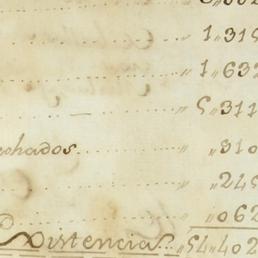 1 „ 319
1 „ 632
— „ 5 „ 311
echados „ „ 310
„ „ 249
„ „ 062
Existencia „ 54 „ 402